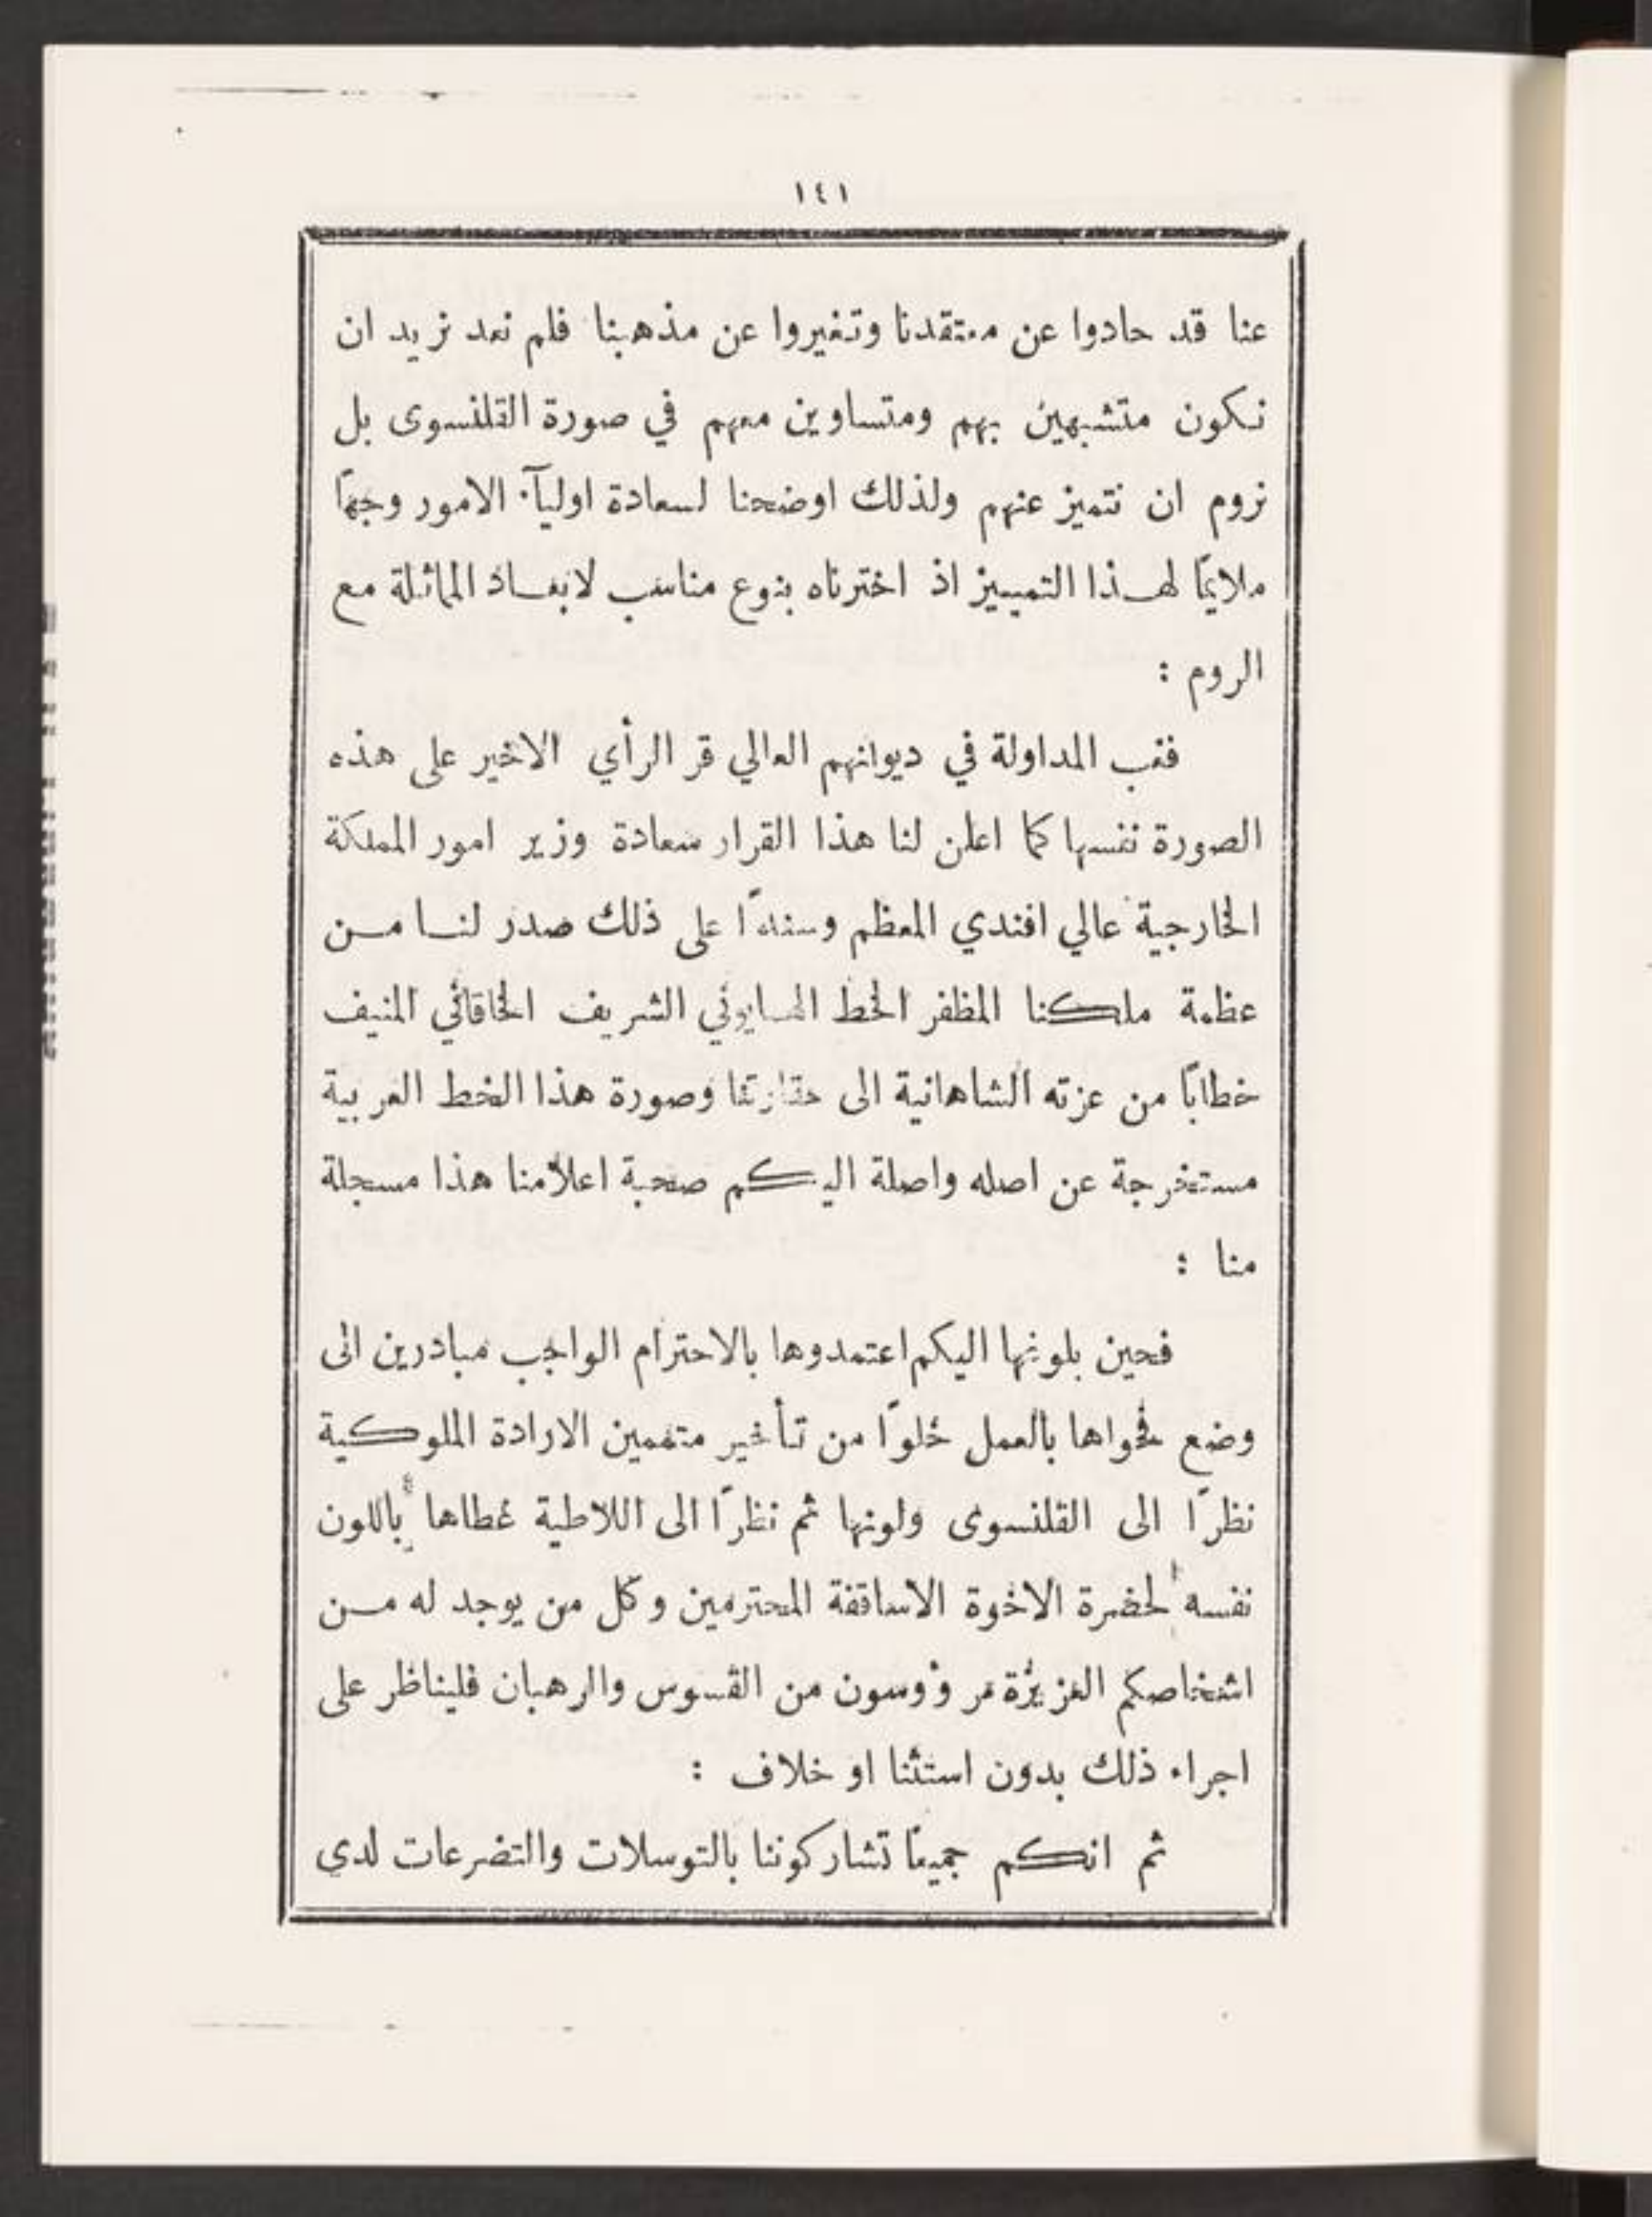 ١٤١
عنا قد حادوا عن معتقدنا وتغيروا عن مذهبنا فلم نعد نريد ان
نكون متشبهين بهم ومتساوين معهم في صورة القلنسوى بل
نروم ان نتميز عنهم ولذلك اوضحنا لسعادة اوليآء الامور وجهًا
ملايمًا لهذا التمييز اذ اخترناه بنوع مناسب لابعاد الماثلة مع
الروم :
فغب المداولة في ديوانهم العالي قر الرأي الاخير على هذه
الصورة نفسها كما اعلن لنا هذا القرار سعادة وزير امور المملكة
الخارجية عالي افندي المعظم وسندًا على ذلك صدر لنا من
عظمة ملكنا المظفر الخط الهمايوني الشريف الخاقاني المنيف
خطابًا من عزته الشاهانية الى حقارتنا وصورة هذا الخط العربية
مستخرجة عن اصله واصلة اليكم صحبة اعلامنا هذا مسجلة
منا :
فحين بلوغها اليكم اعتمدوها بالاحترام الواجب مبادرين الى
وضع فحواها بالعمل خلوًا من تأخير متممين الارادة الملوكية
نظرًا الى القلنسوى ولونها ثم نظرًا الى اللاطية غطاها باللون
نفسه لحضرة الاخوة الاساقفة المحترمين وكل من يوجد له من
اشخاصكم العزيزة مرؤوسون من القسوس والرهبان فليناظر على
اجراء ذلك بدون استثنا او خلاف :
ثم انكم جميعًا تشاركوننا بالتوسلات والتضرعات لدي